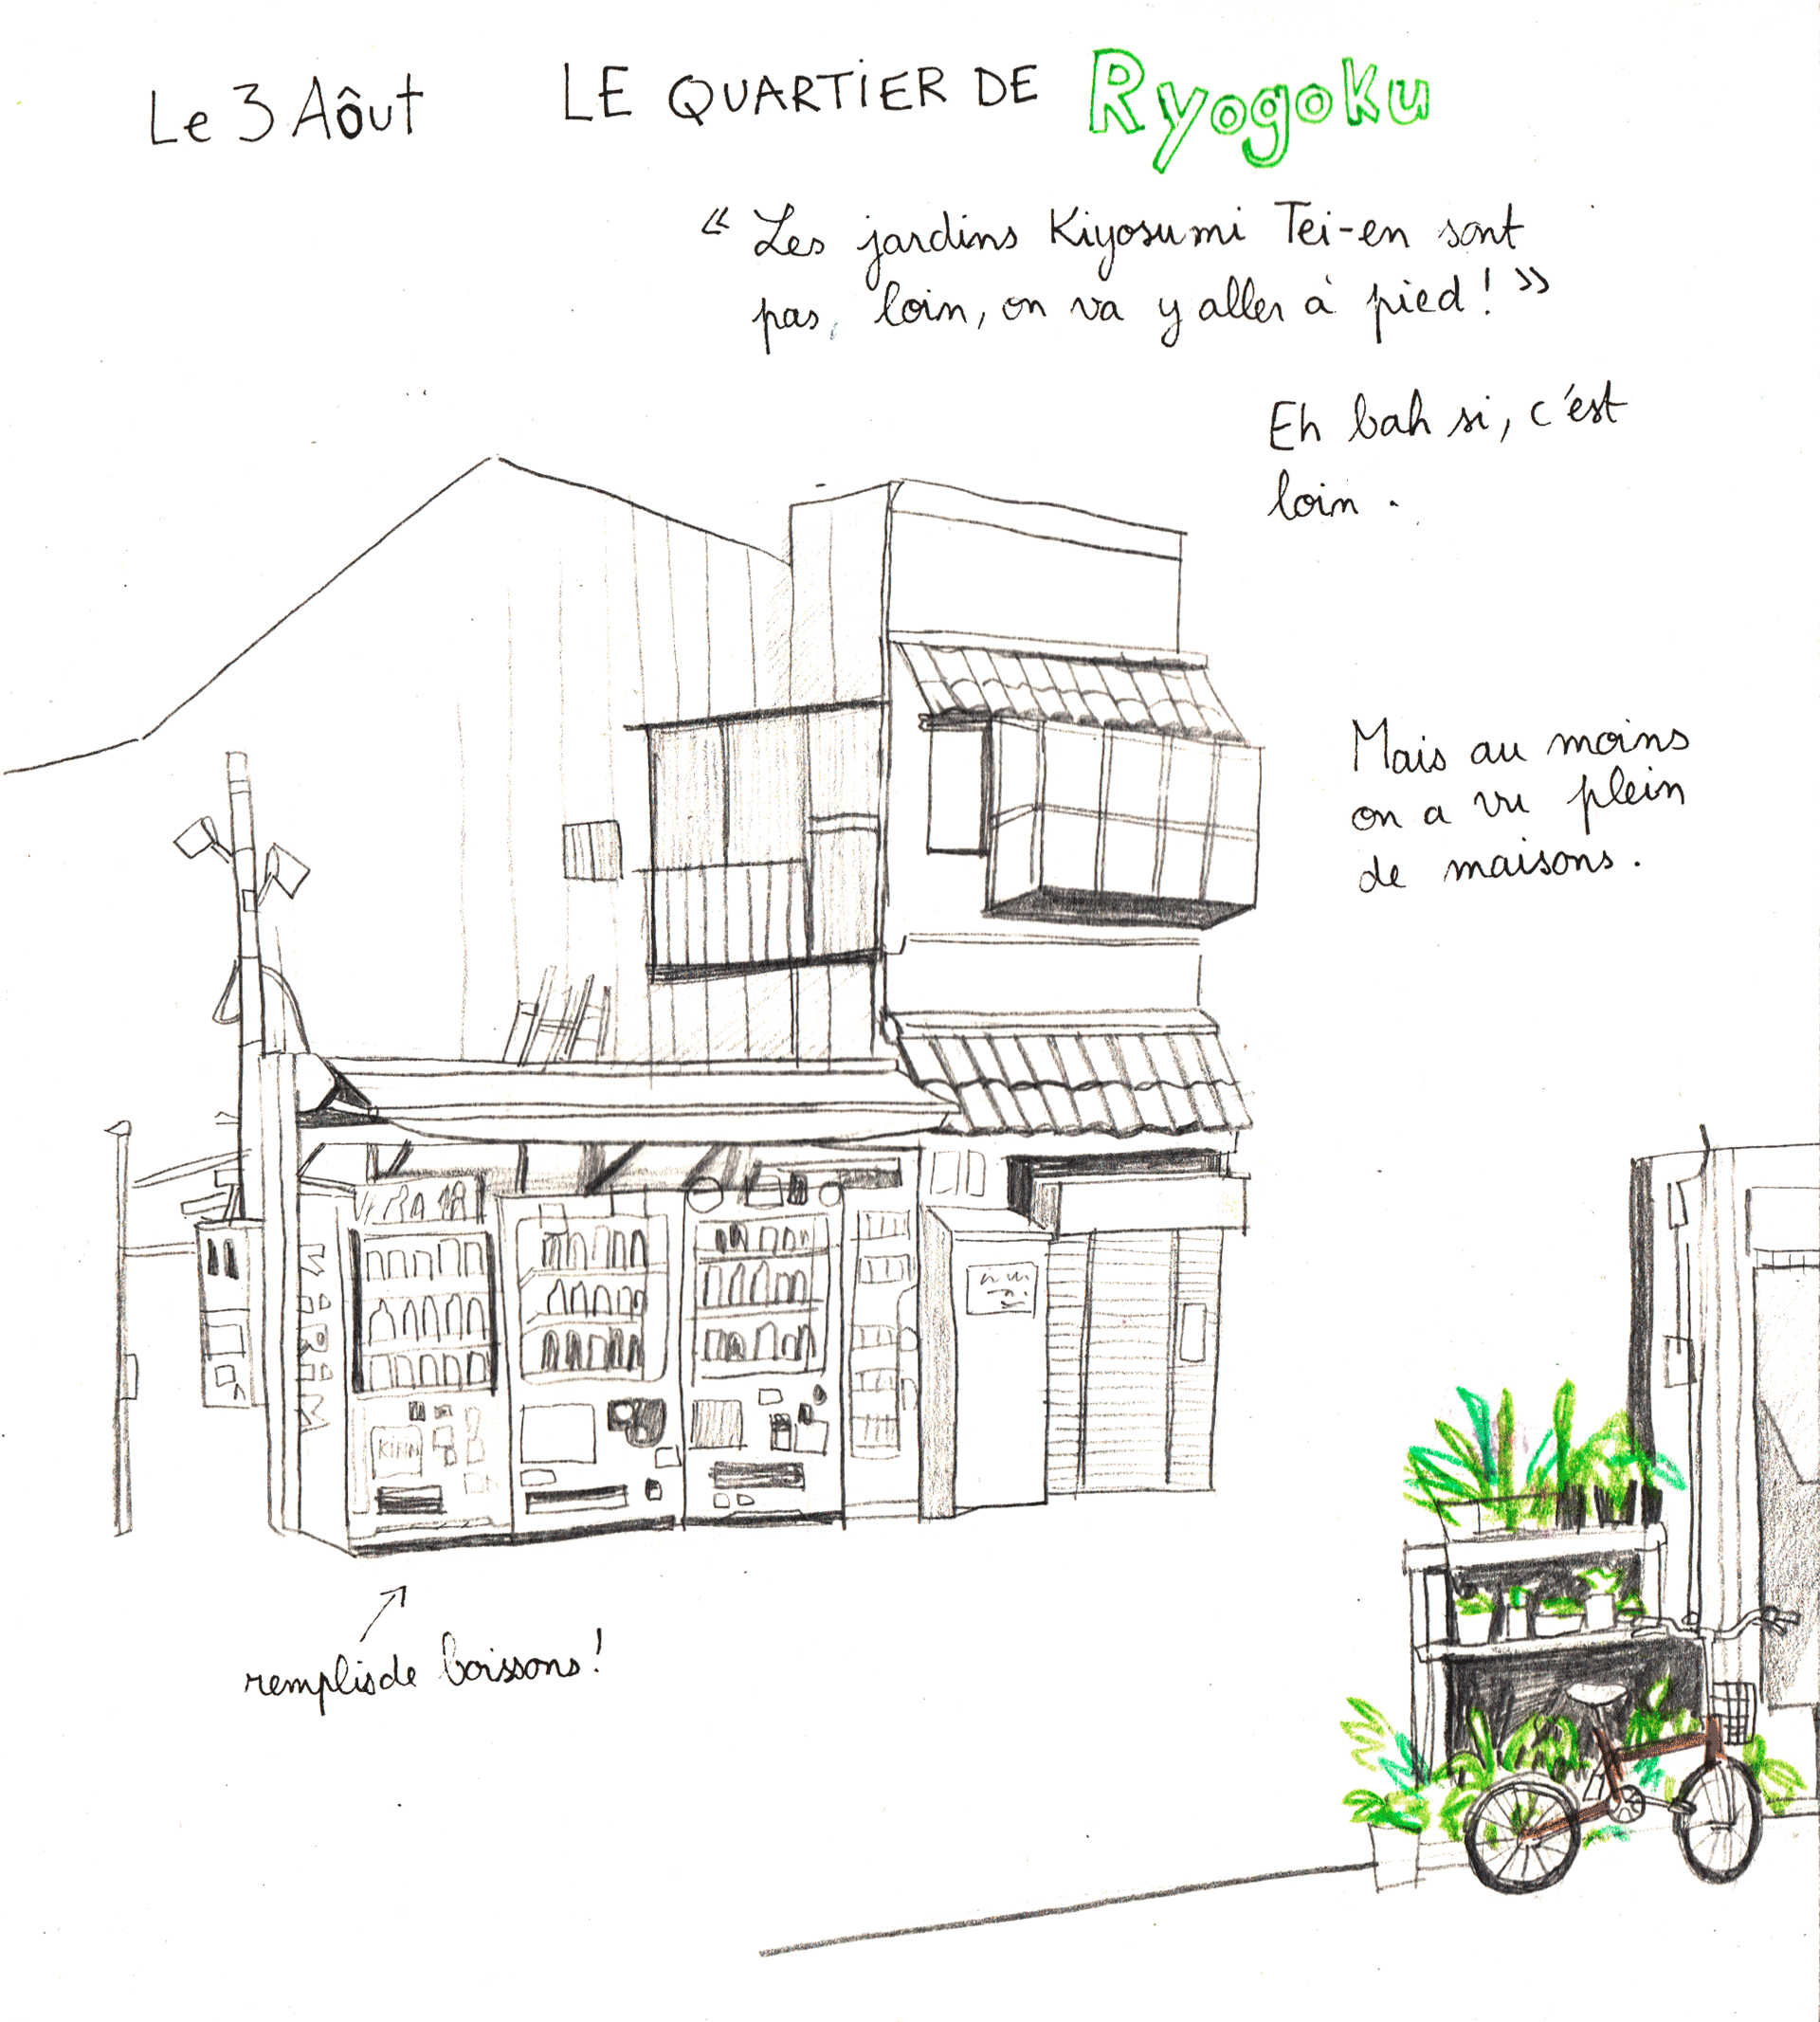 Le 3 Aôut
LE QUARTIER DE Ryogoku
" Les jardins Kiyosumi Tei-en sont
pas loin, on va y aller à pied ! "
Eh bah si, c'est
loin .
Mais au moins
on a vu plein
de maisons .
KIRIN
remplis de boissons !